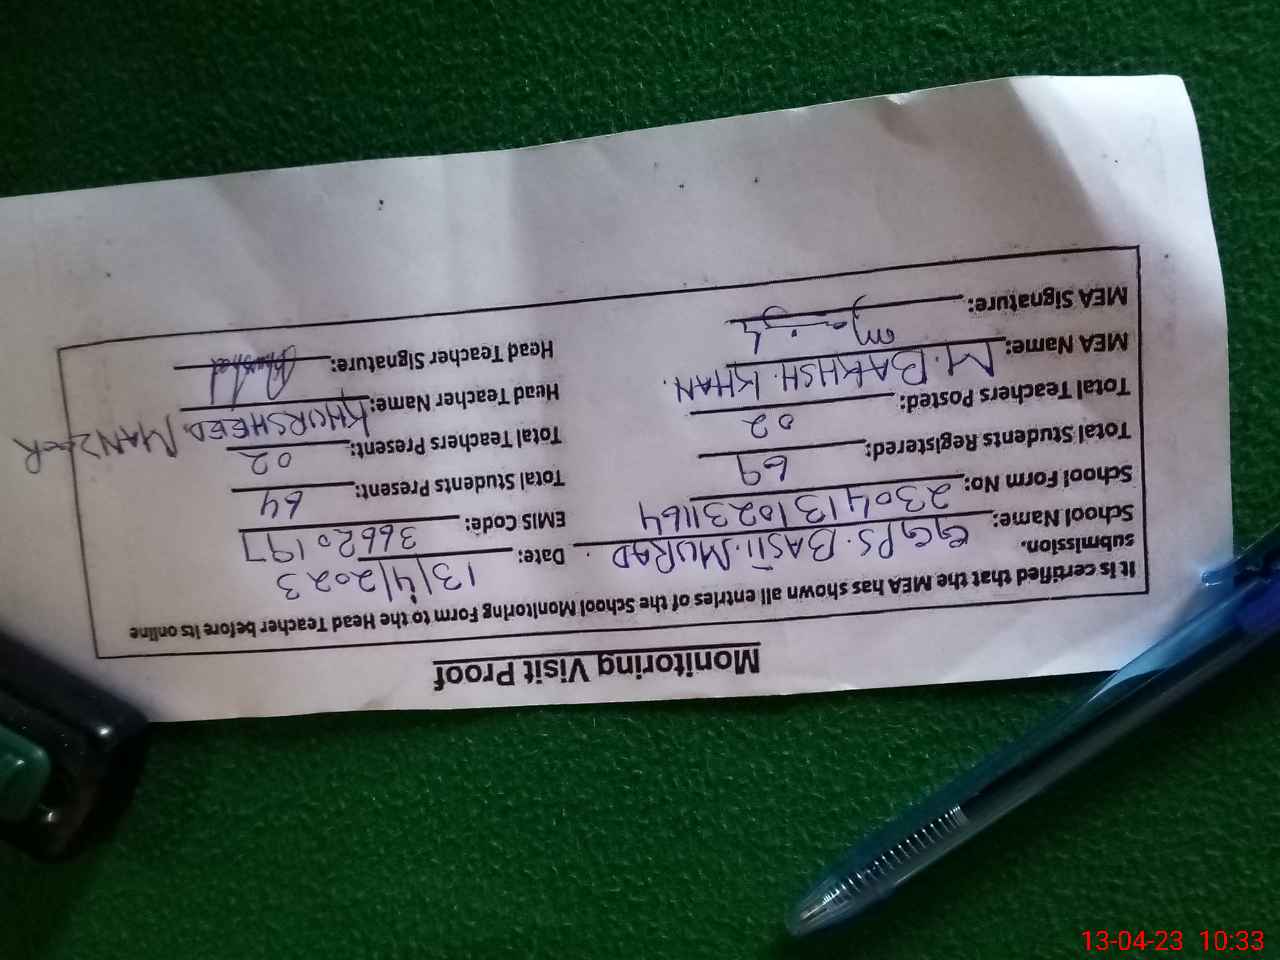 Monitoring Visit Proof
It is certified that the MEA has shown all entries of the School Monitoring Form to the Head Teacher before its online
submission.
School Name: GGPS. BASTI. MURAD. Date: 13/4/2023
School Form No: 23041310231164 EMIS Code: 36620197
Total Students Registered: 69 Total Students Present: 64
Total Teachers Posted: 02 Total Teachers Present: 02
MEA Name: M. BAKHSH. KHAN. Head Teacher Name: KHURSHEED. MANZOOR
MEA Signature: Head Teacher Signature:
13-04-23 10:33